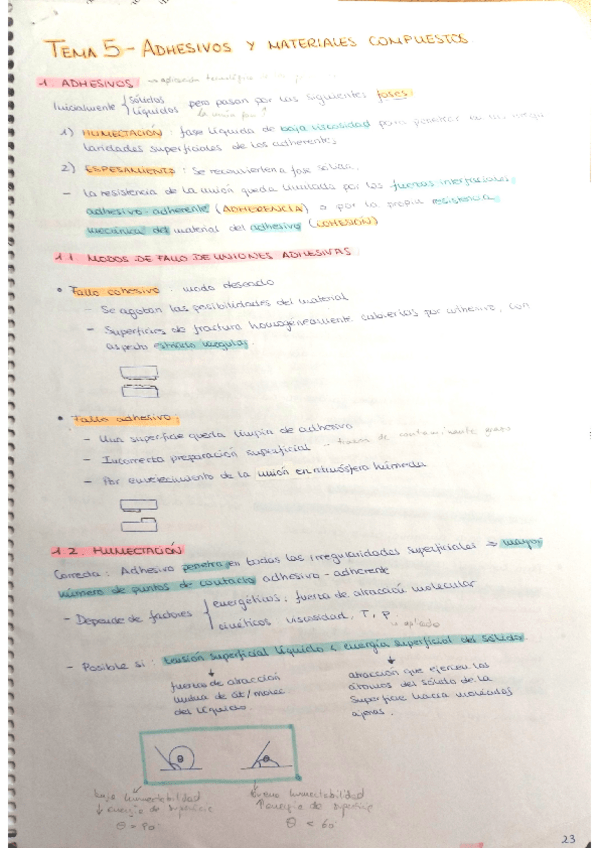 TEMA 5 - ADHESIVOS Y MATERIALES COMPUESTOS
1. ADHESIVOS
Inicialmente { sólidos líquidos pero pasan por las siguientes fases:
1) HUMECTACIÓN: fase líquida de baja viscosidad para penetrar en
laridades superficiales de los adherentes
2) ESPESAMIENTO: Se reconvierten a fase sólida.
- La resistencia de la unión queda limitada por las fuerzas interfaciales
adhesivo-adherente (ADHERENCIA) o por la propia resistencia
mecánica del material del adhesivo (COHESIÓN)
1.1 MODOS DE FALLO DE UNIONES ADHESIVAS
• Fallo cohesivo: modo deseado
- Se agotan las posibilidades del material
- Superficies de fractura homogéneamente cubiertas por adhesivo, con
aspecto
• Fallo adhesivo:
- Una superficie queda limpia de adhesivo
- Incorrecta preparación superficial - trazas de contaminante
- Por envejecimiento de la unión en atmósfera húmeda
1.2. HUMECTACIÓN
Correcta: Adhesivo penetra en todas las irregularidades superficiales → mayor
número de puntos de contacto adhesivo-adherente
- Depende de factores { energéticos: fuerza de atracción molecular
cinéticos viscosidad, T, P.
- Posible si: tensión superficial líquido < energía superficial del sólido.
fuerzas de atracción
mutua de át/molec.
del líquido.
atracción que ejercen los
átomos del sólido de la
superficie hacia moléculas
θ θ
baja humectabilidad
↓ energía de superficie
θ = 90
buena humectabilidad
↑ energía de superficie
θ < 60
23